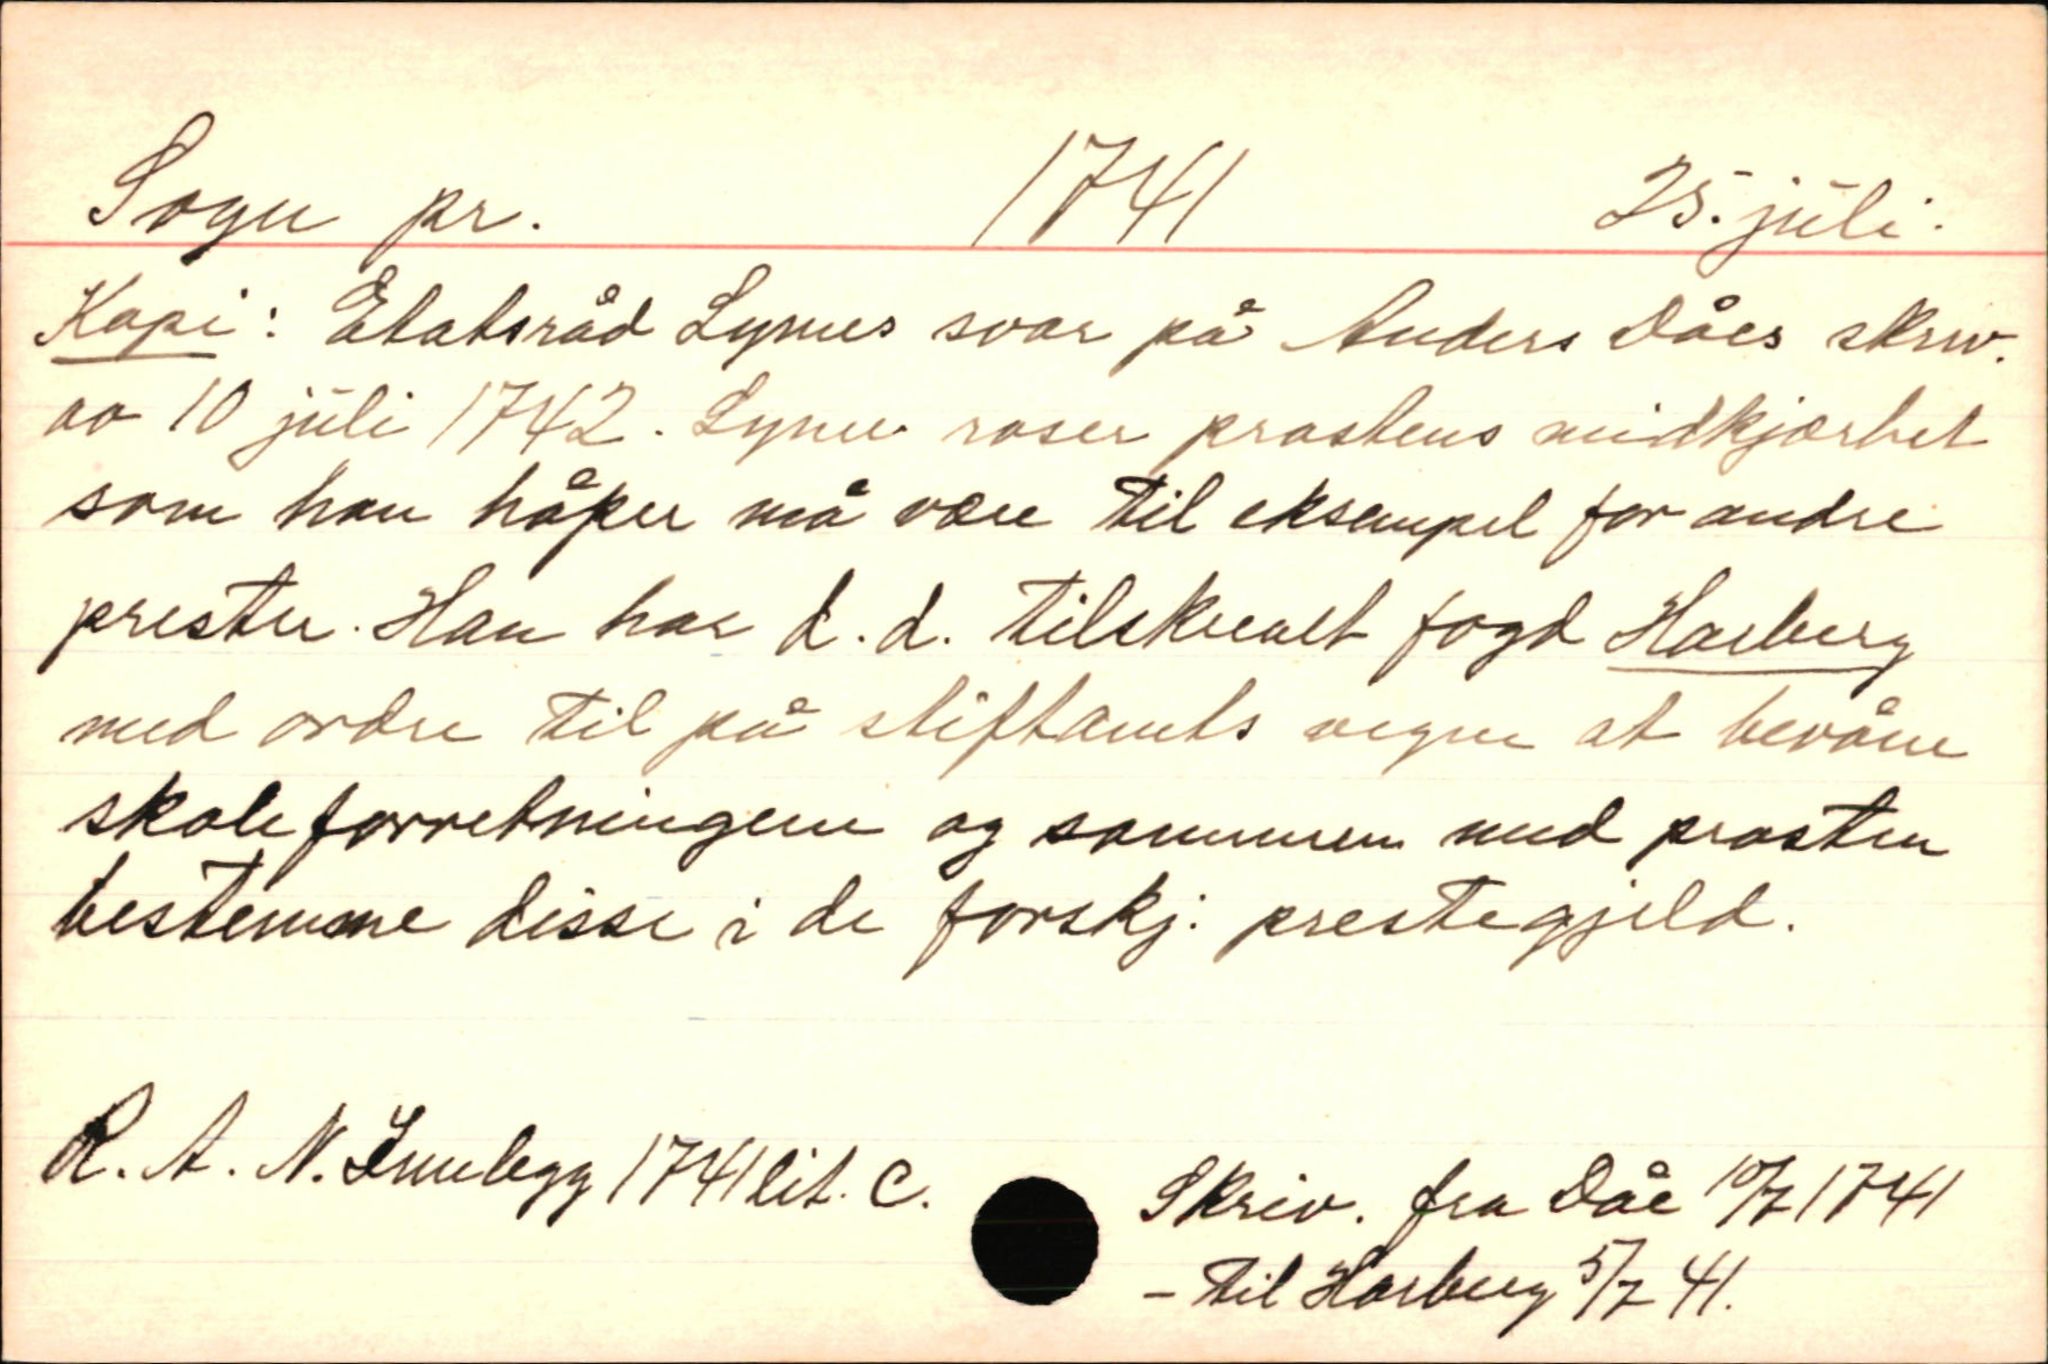 Sogn pr. 1741 25. juli.
Kopi: Etatsråd Lynes svar på Anders Dåes skriv.
av 10 juli 1742. Lyne roser prostens nidkjærhet
som han håper må være til eksempel for andre
prester. Han har d.d. tilskrevet fogd Harberg
med ordre til på stiftamts vegne at bevåne
skoleforretningene og sammen med prosten
bestemme disse i de forskj. prestegjeld.
R. A. N. Innlegg 1741 lit. C.
Skriv. fra Dåe 10/7 1741
- til Harberg 5/7 41.